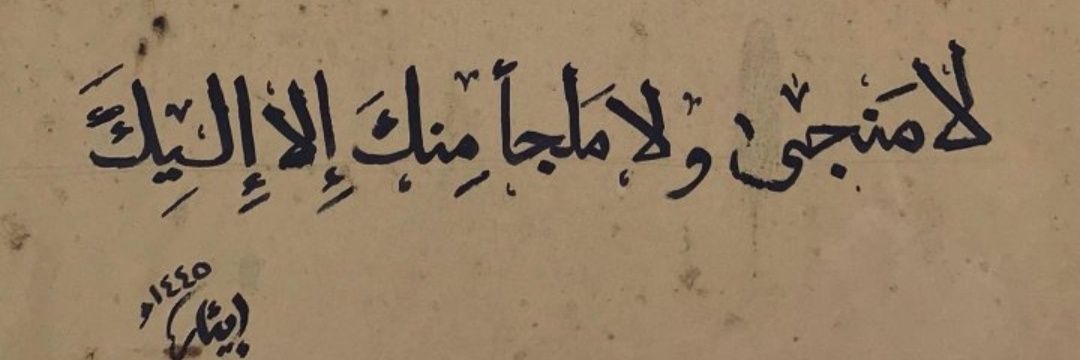 لا مَنجى ولا مَلجأ مِنكَ إلا إلَيكَ
١٤٤٥ء
إيثار